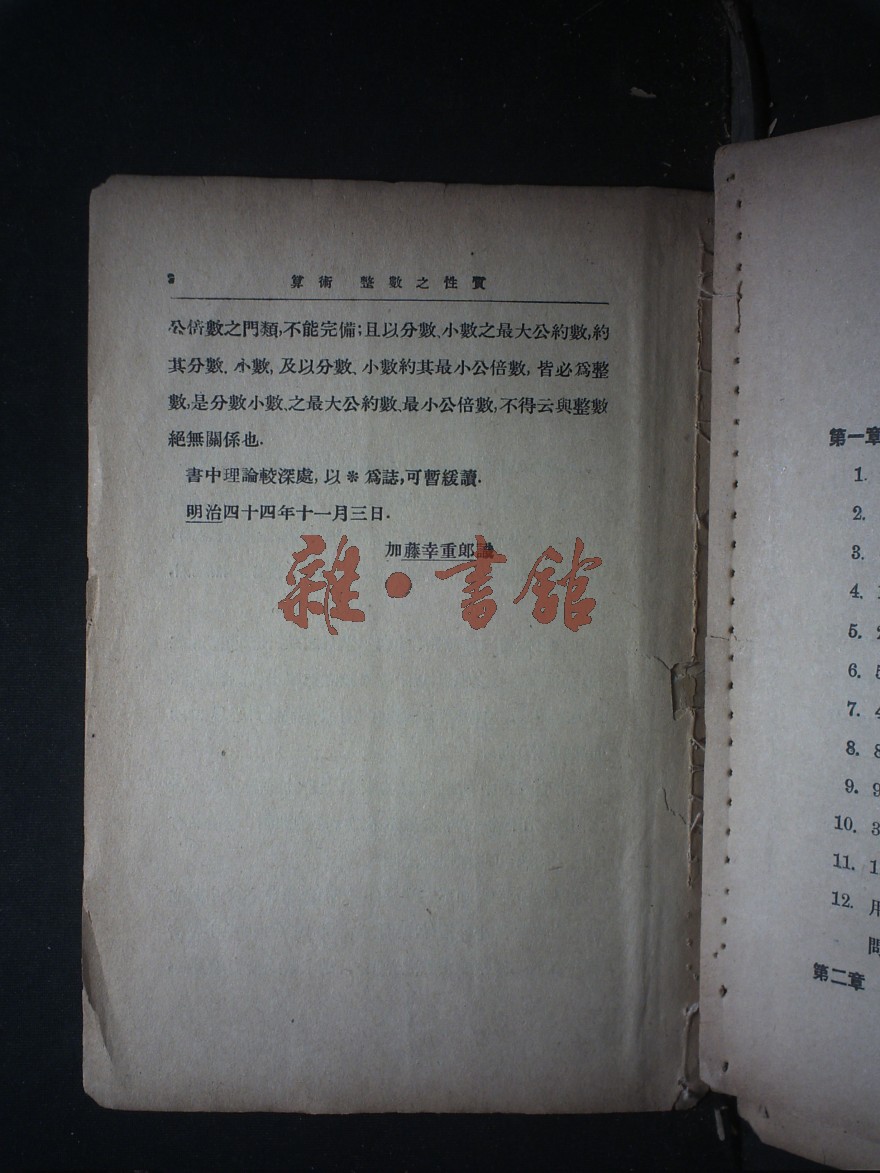 2 算術 整數之性質
公倍數之門類,不能完備;且以分數、小數之最大公約數,約
其分數、小數,及以分數、小數約其最小公倍數,皆必爲整
數,是分數小數、之最大公約數、最小公倍數,不得云與整數
絕無關係也.
書中理論較深處,以*爲誌,可暫緩讀.
明治四十四年十一月三日.
加藤幸重郎識
雜·書館
第一章
1.
2.
3.
4.
5.
6.
7.
8.
9.
10. 3
11. 1
12. 用
問
第二章